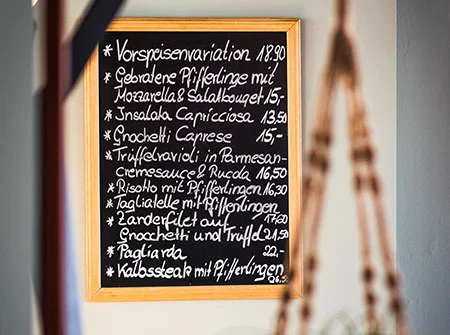 * Vorspeisenvariation 18.90
* Gebratene Pfifferlinge mit
Mozzarella & Salatbouget 15,-
* Insalata Capricciosa 13,50
* Gnochetti Caprese 15,-
* Trüffelravioli in Parmesan-
cremesauce & Rucola 16,50
* Risotto mit Pfifferlingen 16,30
* Tagliatelle mit Pfifferlingen
* Zanderfilet auf
Gnocchetti und Trüffel 21,50
* Pagliarda 22,-
* Kalbssteak mit Pfifferlingen